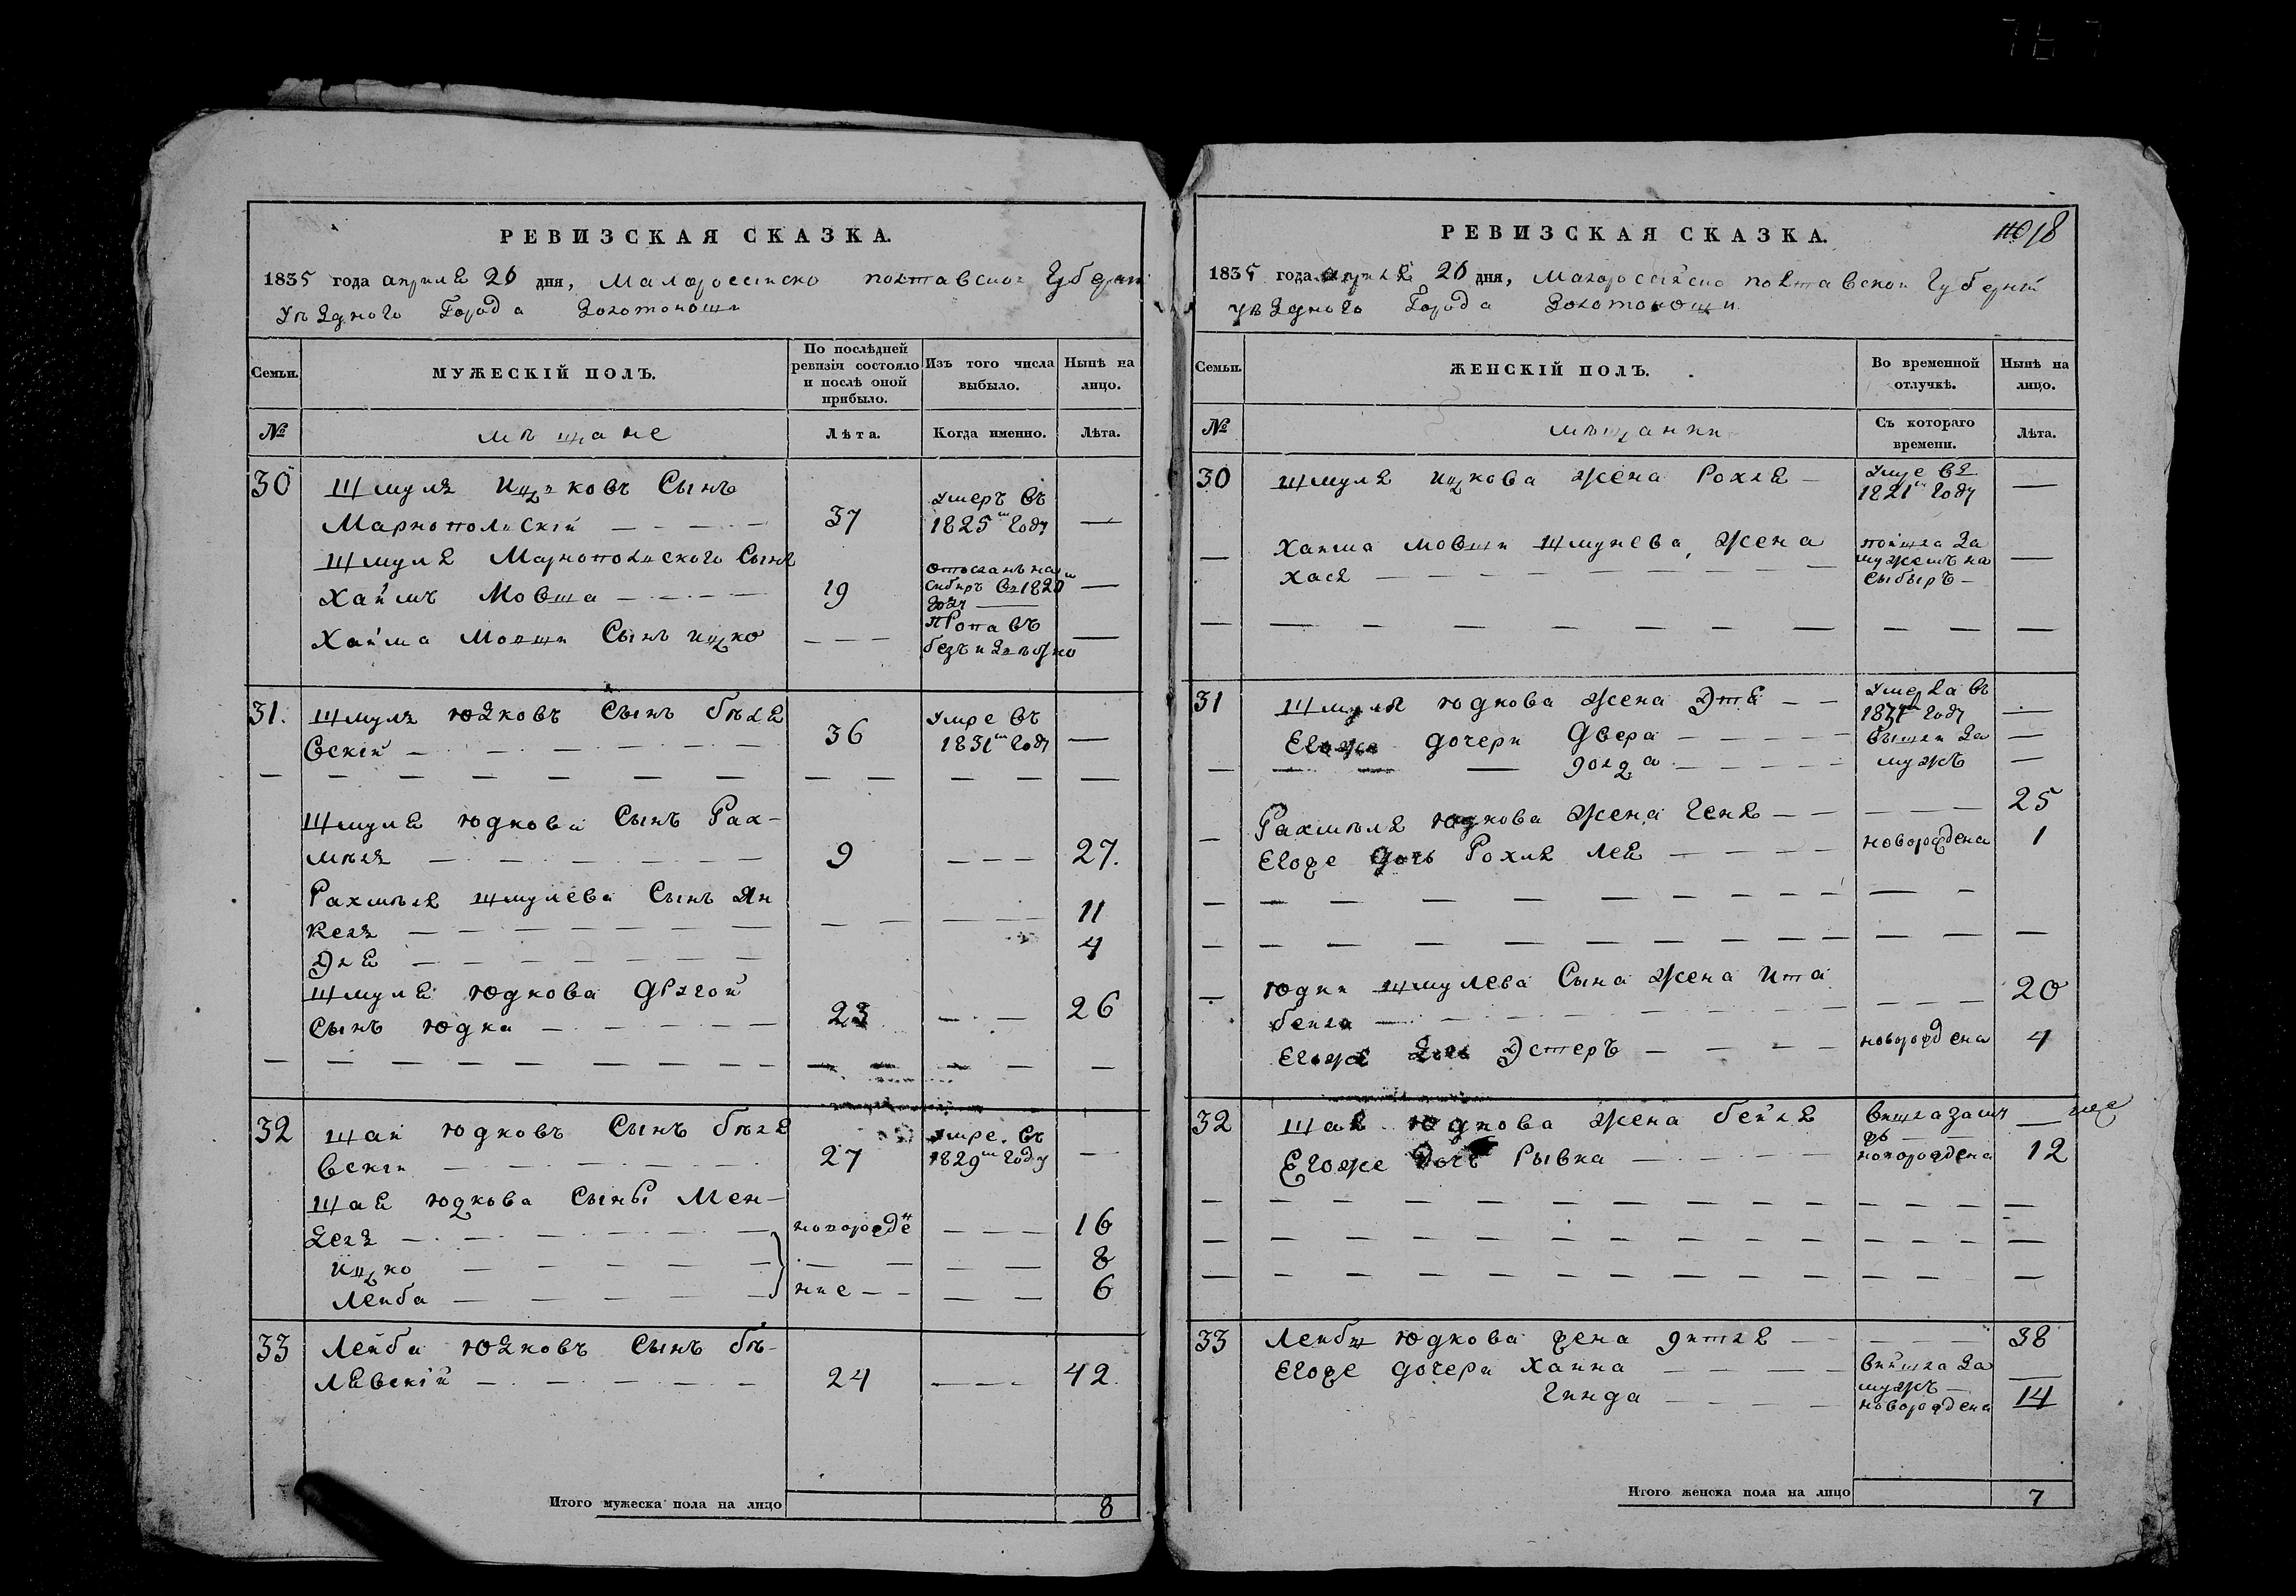 РЕВИЗСКАЯ СКАЗКА.
1835 года апреля 26 дня, Малоросийско полтавской Губерни
уѣздного Города Золотоноши
Семьи.
МУЖЕСКІЙ ПОЛЪ.
По послѣдней ревизіи состояло и послѣ оной прибыло.
Изъ того числа выбыло.
Нынѣ на лицо.
№
мѣщане
Лѣта.
Когда именно.
Лѣта.
30 Шмуля Ицковъ Сынъ
Марнопольскій — 37 умеръ въ 1825 году —
Шмуля Марнопольского Сынъ
Хаймъ Мовша — 19 отосланъ на Сибиръ въ 1820 году —
Хайма Мовши Сынъ Ицко — — —
31. Шмуля Юдковъ Сынъ бѣле
вскій — 36 умре въ 1831 году —
Шмуля Юдкова Сынъ Рах-
мѣля — 9 — — — 27.
Рахмѣля Шмулева Сынъ Ян
келя — 11
Эля — 4
Шмуля Юдкова другой
Сынъ Юдка — 23 — — 26
32 Шаи Юдковъ Сынъ бѣле
вскги — 27 умре въ 1829 году —
Шая Юдкова Сыны Мен-
деля — новорожде — — 16
Ицко — 8
Лейба — ние — — 6
33 Лейба Юдковъ Сынъ бѣ-
лѣвскій — 24 — — — 42.
Итого мужеска пола на лицо 8
РЕВИЗСКАЯ СКАЗКА.
1835 года апреля 26 дня, Малоросийско полтавской Губерний
уѣздного Города Золотоноши
Семьи.
ЖЕНСКІЙ ПОЛЪ.
Во временной отлучкѣ.
Нынѣ на лицо.
№
мѣщанки
Съ котораго времени.
Лѣта.
30 Шмуля Ицкова жена Рохля — 1821 Году —
Хаима мовши Шмулева жена
хася — пойшла за мужемъ на Сыбыръ —
31 Шмуля Юдкова жена Этя — умерла въ Году —
Егоже дочери Двера — вышли за —
мужъ —
Рахмѣля Юдкова жена Геня — — 25
Егоже дочь Рохля Лея — новорождена 1
Юдки Шмулева Сына жена Ита
бейла — — 20
Егоже дочь Эстеръ — новорождена 4
32 Шая Юдкова жена бейля —
Егоже дочъ Рывка — новорождена 12
33 Лейбы Юдкова жена — 38
Егоже дочери Ханна — вийшла за мужъ —
Гинда — новорождена 14
Итого женска пола на лицо 7